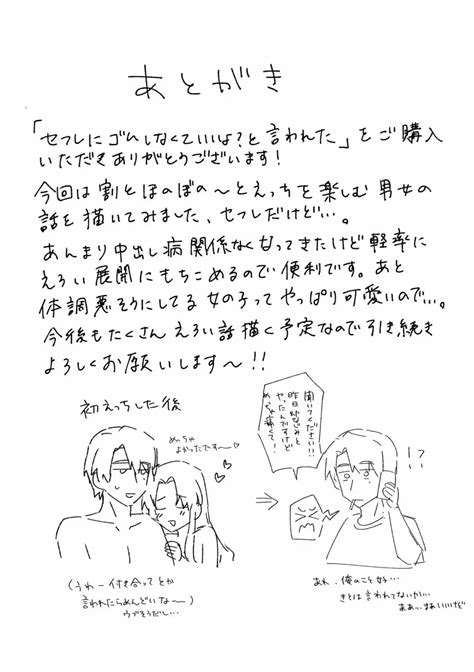 あとがき
「セフレにゴムしなくていいよ?と言われた」をご購入
いただきありがとうございます!
今回は割とほのぼの〜とえっちを楽しむ男女の
話を描いてみました、セフレだけど…。
あんまり中出し病関係なくなってきたけど軽率に
えろい展開にもちこめるので便利です。あと
体調悪そうにしてる女の子ってやっぱり可愛いので…。
今後もたくさんえろい話描く予定なので引き続き
よろしくお願いします〜!!
初えっちした後
めっちゃ
よかったです〜♡
(うわー付き合ってとか
言われたらめんどいな〜)
ウブそうだし…
聞いてください!!
やったんですけど
めっちゃ痛くて!
⇒
!?
あれ、俺のこと好…
きとは言われてないか…
まあ…まあいいけど